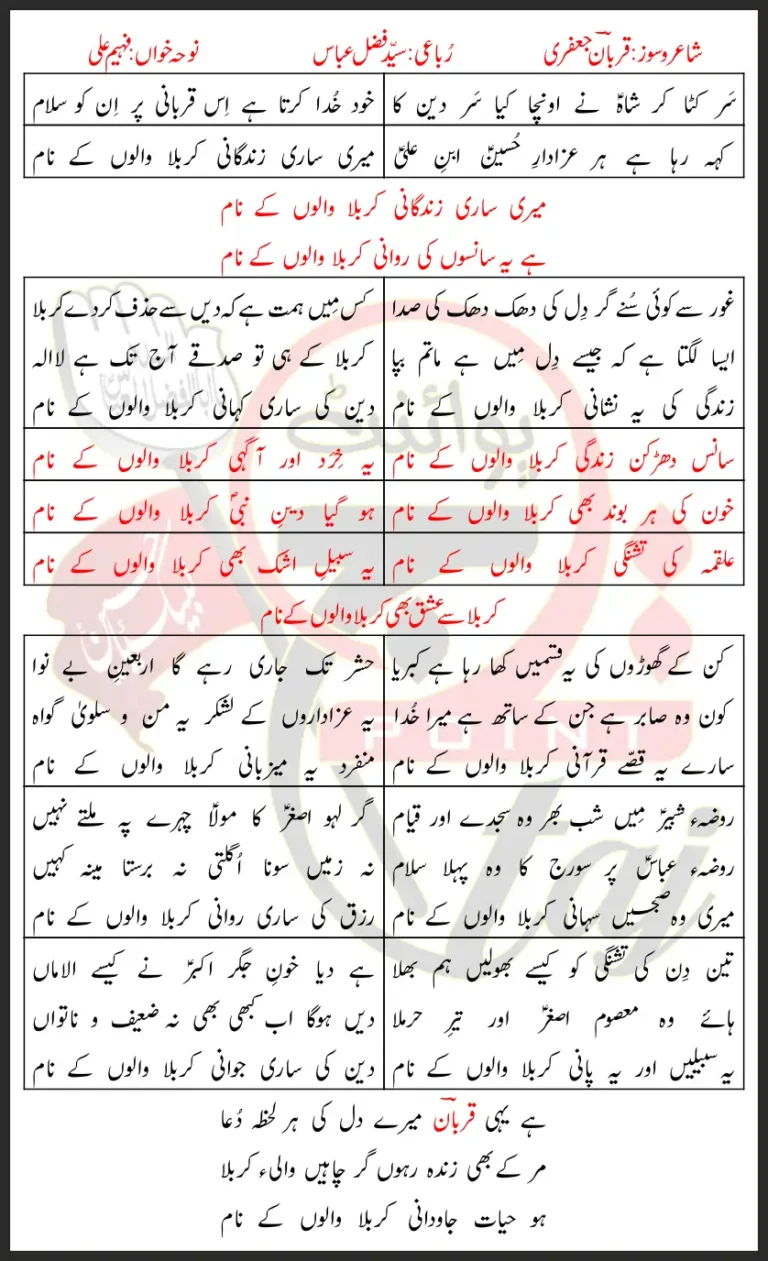 شاعر و سوز: قربانؔ جعفری رُباعی: سیّد فضل عباس نوحہ خواں: فہیم علی
سَر کٹا کر شاہؑ نے اونچا کیا سَر دین کا خود خُدا کرتا ہے اِس قربانی پر اِن کو سلام
کہہ رہا ہے ہر عزادارِ حُسینؑ ابنِ علیؑ میری ساری زندگانی کربلا والوں کے نام
میری ساری زندگانی کربلا والوں کے نام
ہے یہ سانسوں کی روانی کربلا والوں کے نام
غور سے کوئی سُنے گر دِل کی دھک دھک کی صدا کس مِیں ہمت ہے کہ دیں سے حذف کردے کربلا
ایسا لگتا ہے کہ جیسے دِل مِیں ہے ماتم بپا کربلا کے ہی تو صدقے آج تک ہے لاالہ
زندگی کی یہ نشانی کربلا والوں کے نام دین کی ساری کہانی کربلا والوں کے نام
سانس دھڑکن زندگی کربلا والوں کے نام یہ خِرَد اور آگہی کربلا والوں کے نام
خون کی ہر بوند بھی کربلا والوں کے نام ہو گیا دینِ نبیؐ کربلا والوں کے نام
علقمہ کی تشنگی کربلا والوں کے نام یہ سبیلِ اشک بھی کربلا والوں کے نام
کربلا سے عشق بھی کربلا والوں کے نام
کن کے گھوڑوں کی یہ قسمیں کھا رہا ہے کبریا حشر تک جاری رہے گا اربعینِ بے نوا
کون وہ صابر ہے جن کے ساتھ ہے میرا خُدا یہ عزاداروں کے لشکر یہ من و سلویٰ گواہ
سارے یہ قصّے قرآنی کربلا والوں کے نام منفرد یہ میزبانی کربلا والوں کے نام
روضہء شبیرؑ مِیں شب بھر وہ سجدے اور قیام گر لہو اصغرؑ کا مولاؑ چہرے پہ ملتے نہیں
روضہء عباسؑ پر سورج کا وہ پہلا سلام نہ زمیں سونا اُگلتی نہ برستا مینہ کہیں
میری وہ صبحیں سہانی کربلا والوں کے نام رزق کی ساری روانی کربلا والوں کے نام
تین دِن کی تشنگی کو کیسے بھولیں ہم بھلا ہے دیا خونِ جگر اکبرؑ نے کیسے الاماں
ہائے وہ معصوم اصغرؑ اور تیرِ حرملا دیں ہوگا اب کبھی بھی نہ ضعیف و ناتواں
یہ سبیلیں اور یہ پانی کربلا والوں کے نام دین کی ساری جوانی کربلا والوں کے نام
ہے یہی قربانؔ میرے دل کی ہر لحظہ دُعا
مر کے بھی زندہ رہوں گر چاہیں والیء کربلا
ہو حیات جاودانی کربلا والوں کے نام
پوائنٹ
POINT
taj